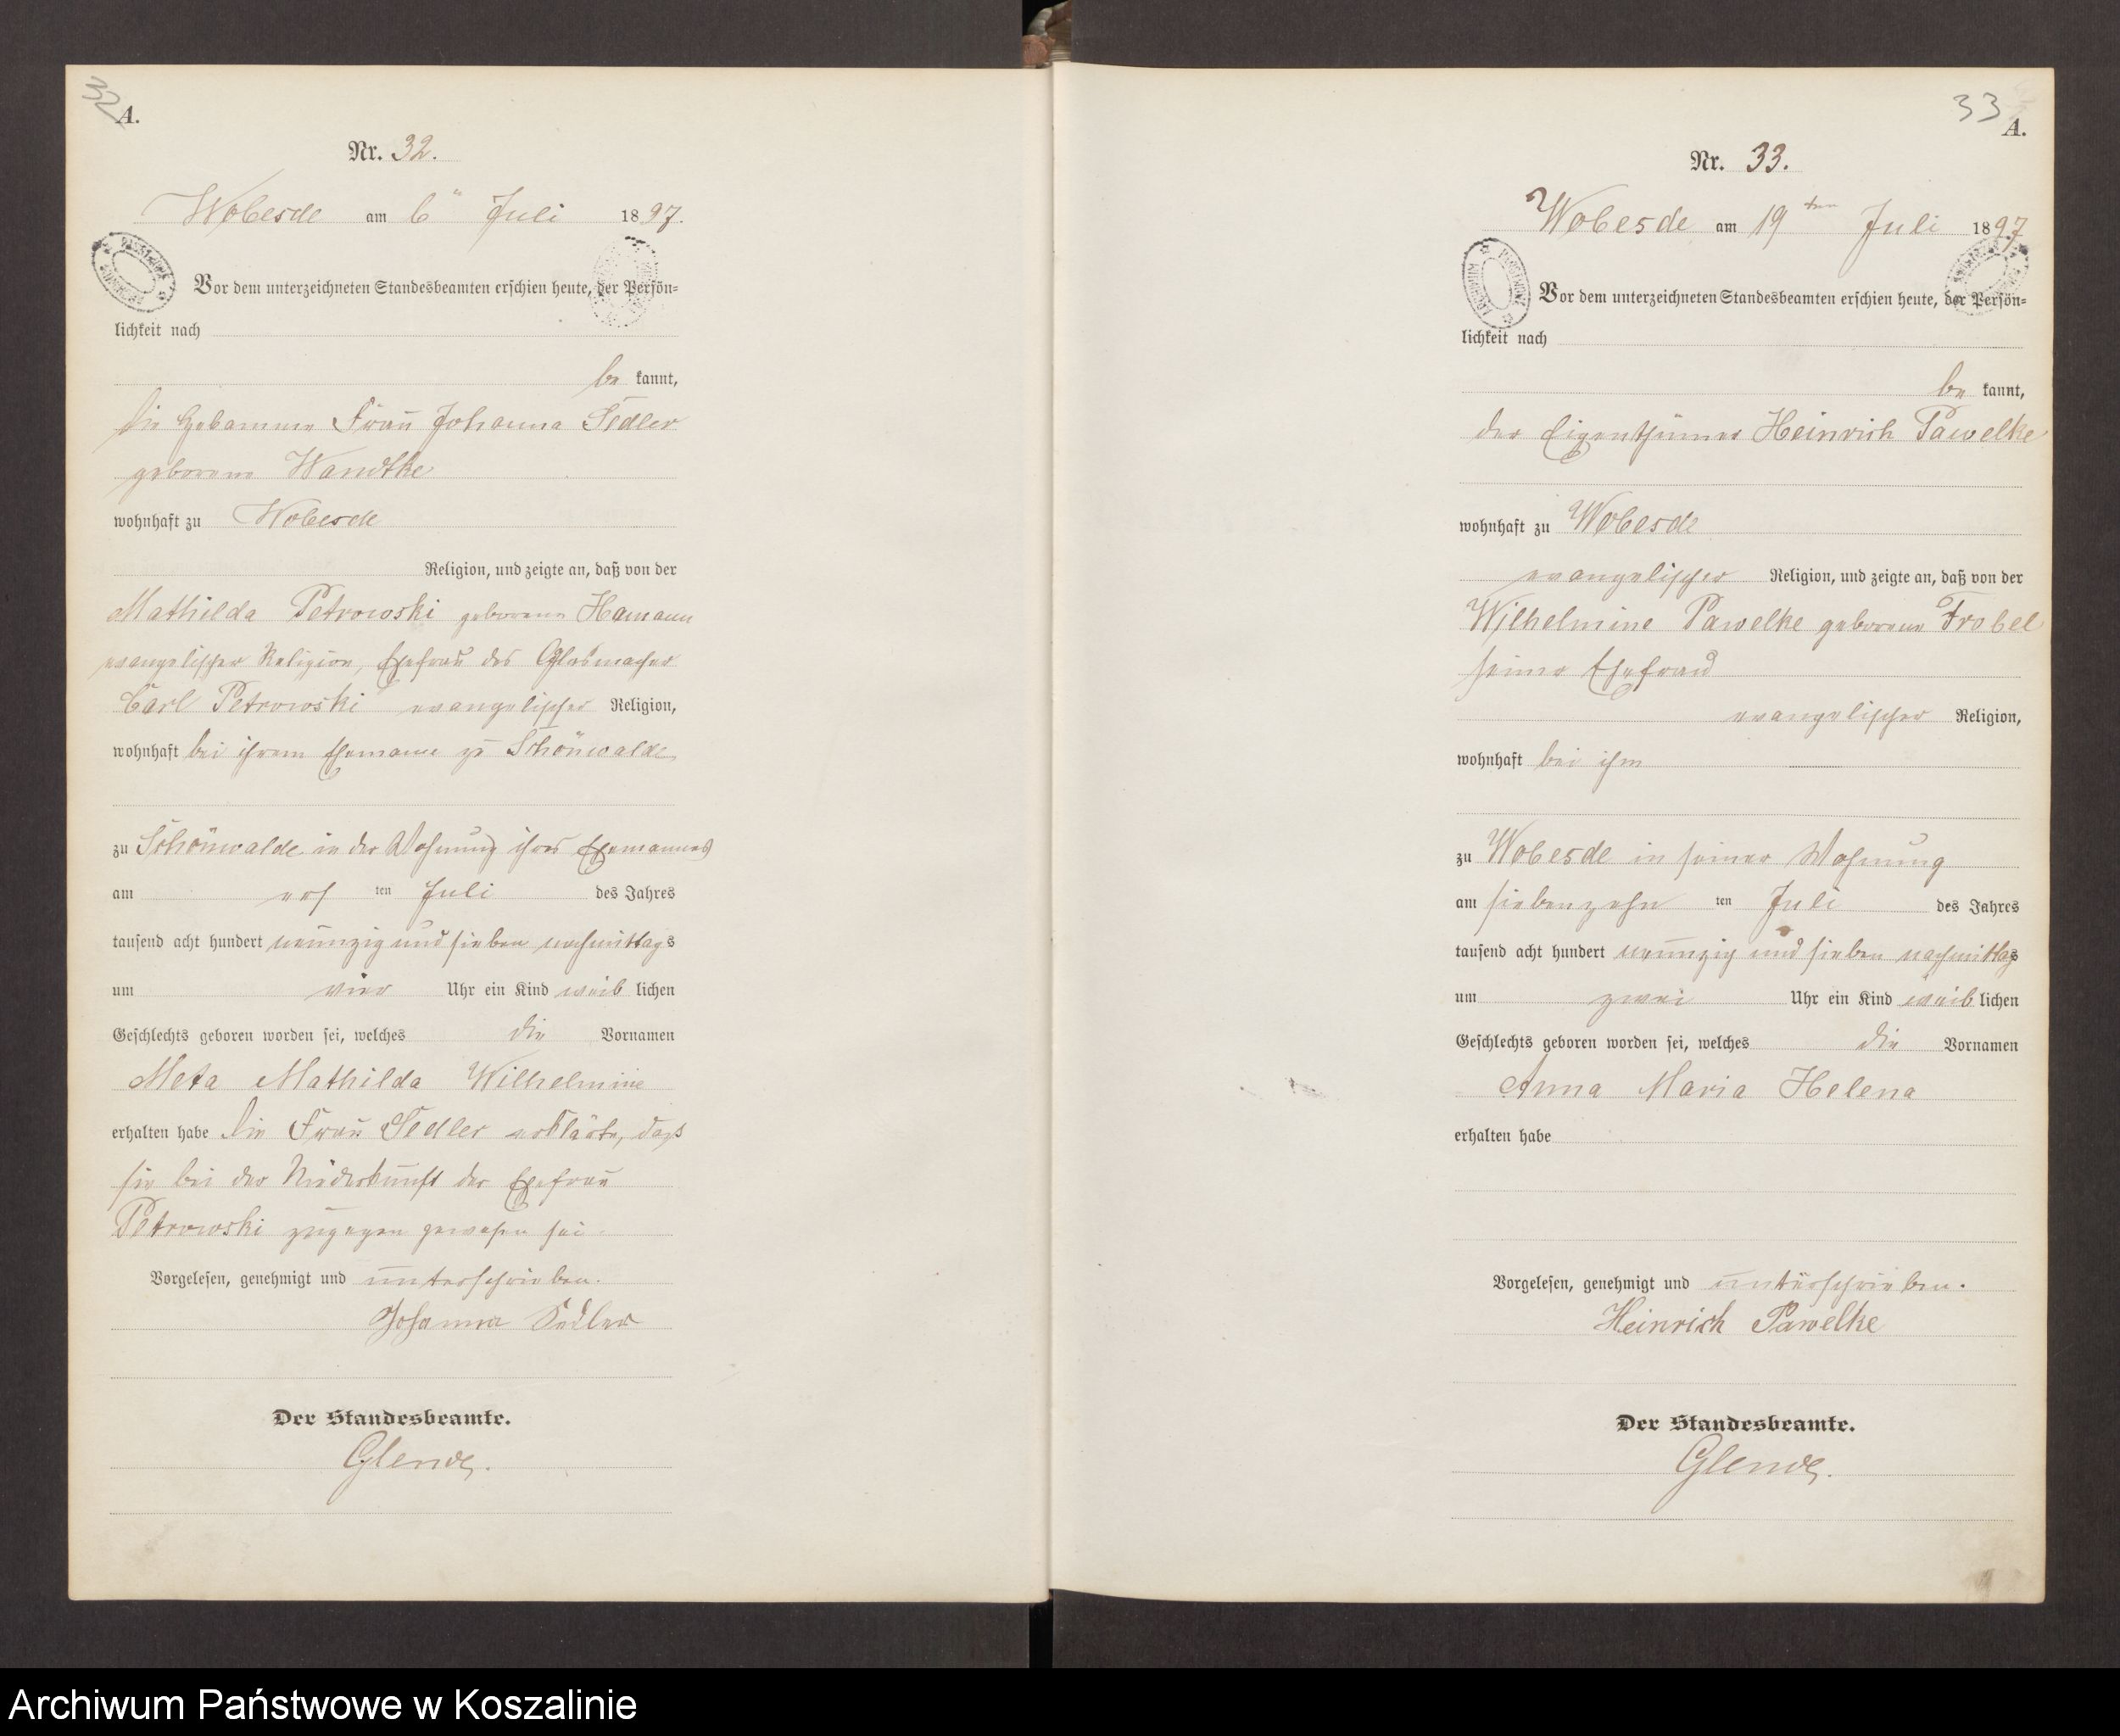 32
A.
Nr. 32.
Wobesde am 6ten Juli 1897.
Vor dem unterzeichneten Standesbeamten erschien heute, der Persön=
lichkeit nach
be kannt,
die Hebamme Frau Johanna Sedler
geborene Wandtke
wohnhaft zu Wobesde
Religion, und zeigte an, daß von der
Mathilda Petrowski geborene Hamann
evangelischer Religion, Ehefrau des Glasmacher
Carl Petrowski evangelischer Religion,
wohnhaft bei ihrem Ehemanne zu Schönwalde
zu Schönwalde in der Wohnung ihres Ehemannes
am ten Juli des Jahres
tausend acht hundert neunzig und sieben nachmittags
um vier Uhr ein Kind weib lichen
Geschlechts geboren worden sei, welches die Vornamen
Meta Mathilda Wilhelmine
erhalten habe die Frau Sedler erklärte, dass
sie bei der Niederkunft der Ehefrau
Petrowski zugegen gewesen sei.
Vorgelesen, genehmigt und unterschrieben.
Johanna Sedler
Der Standesbeamte.
Glende.
33
A.
Nr. 33.
Wobesde am 19ten Juli 1897
Vor dem unterzeichneten Standesbeamten erschien heute, der Persön=
lichkeit nach
be kannt,
der Eigenthümer Heinrich Pawelke
wohnhaft zu Wobesde
evangelischer Religion, und zeigte an, daß von der
Wilhelmine Pawelke geborene Frobel
seiner Ehefrau
evangelischer Religion,
wohnhaft bei ihm
zu Wobesde in seiner Wohnung
am siebenzehn ten Juli des Jahres
tausend acht hundert neunzig und sieben nachmittags
um zwei Uhr ein Kind weib lichen
Geschlechts geboren worden sei, welches die Vornamen
Anna Maria Helena
erhalten habe
Vorgelesen, genehmigt und unterschrieben.
Heinrich Pawelke
Der Standesbeamte.
Glende.
Archiwum Państwowe w Koszalinie